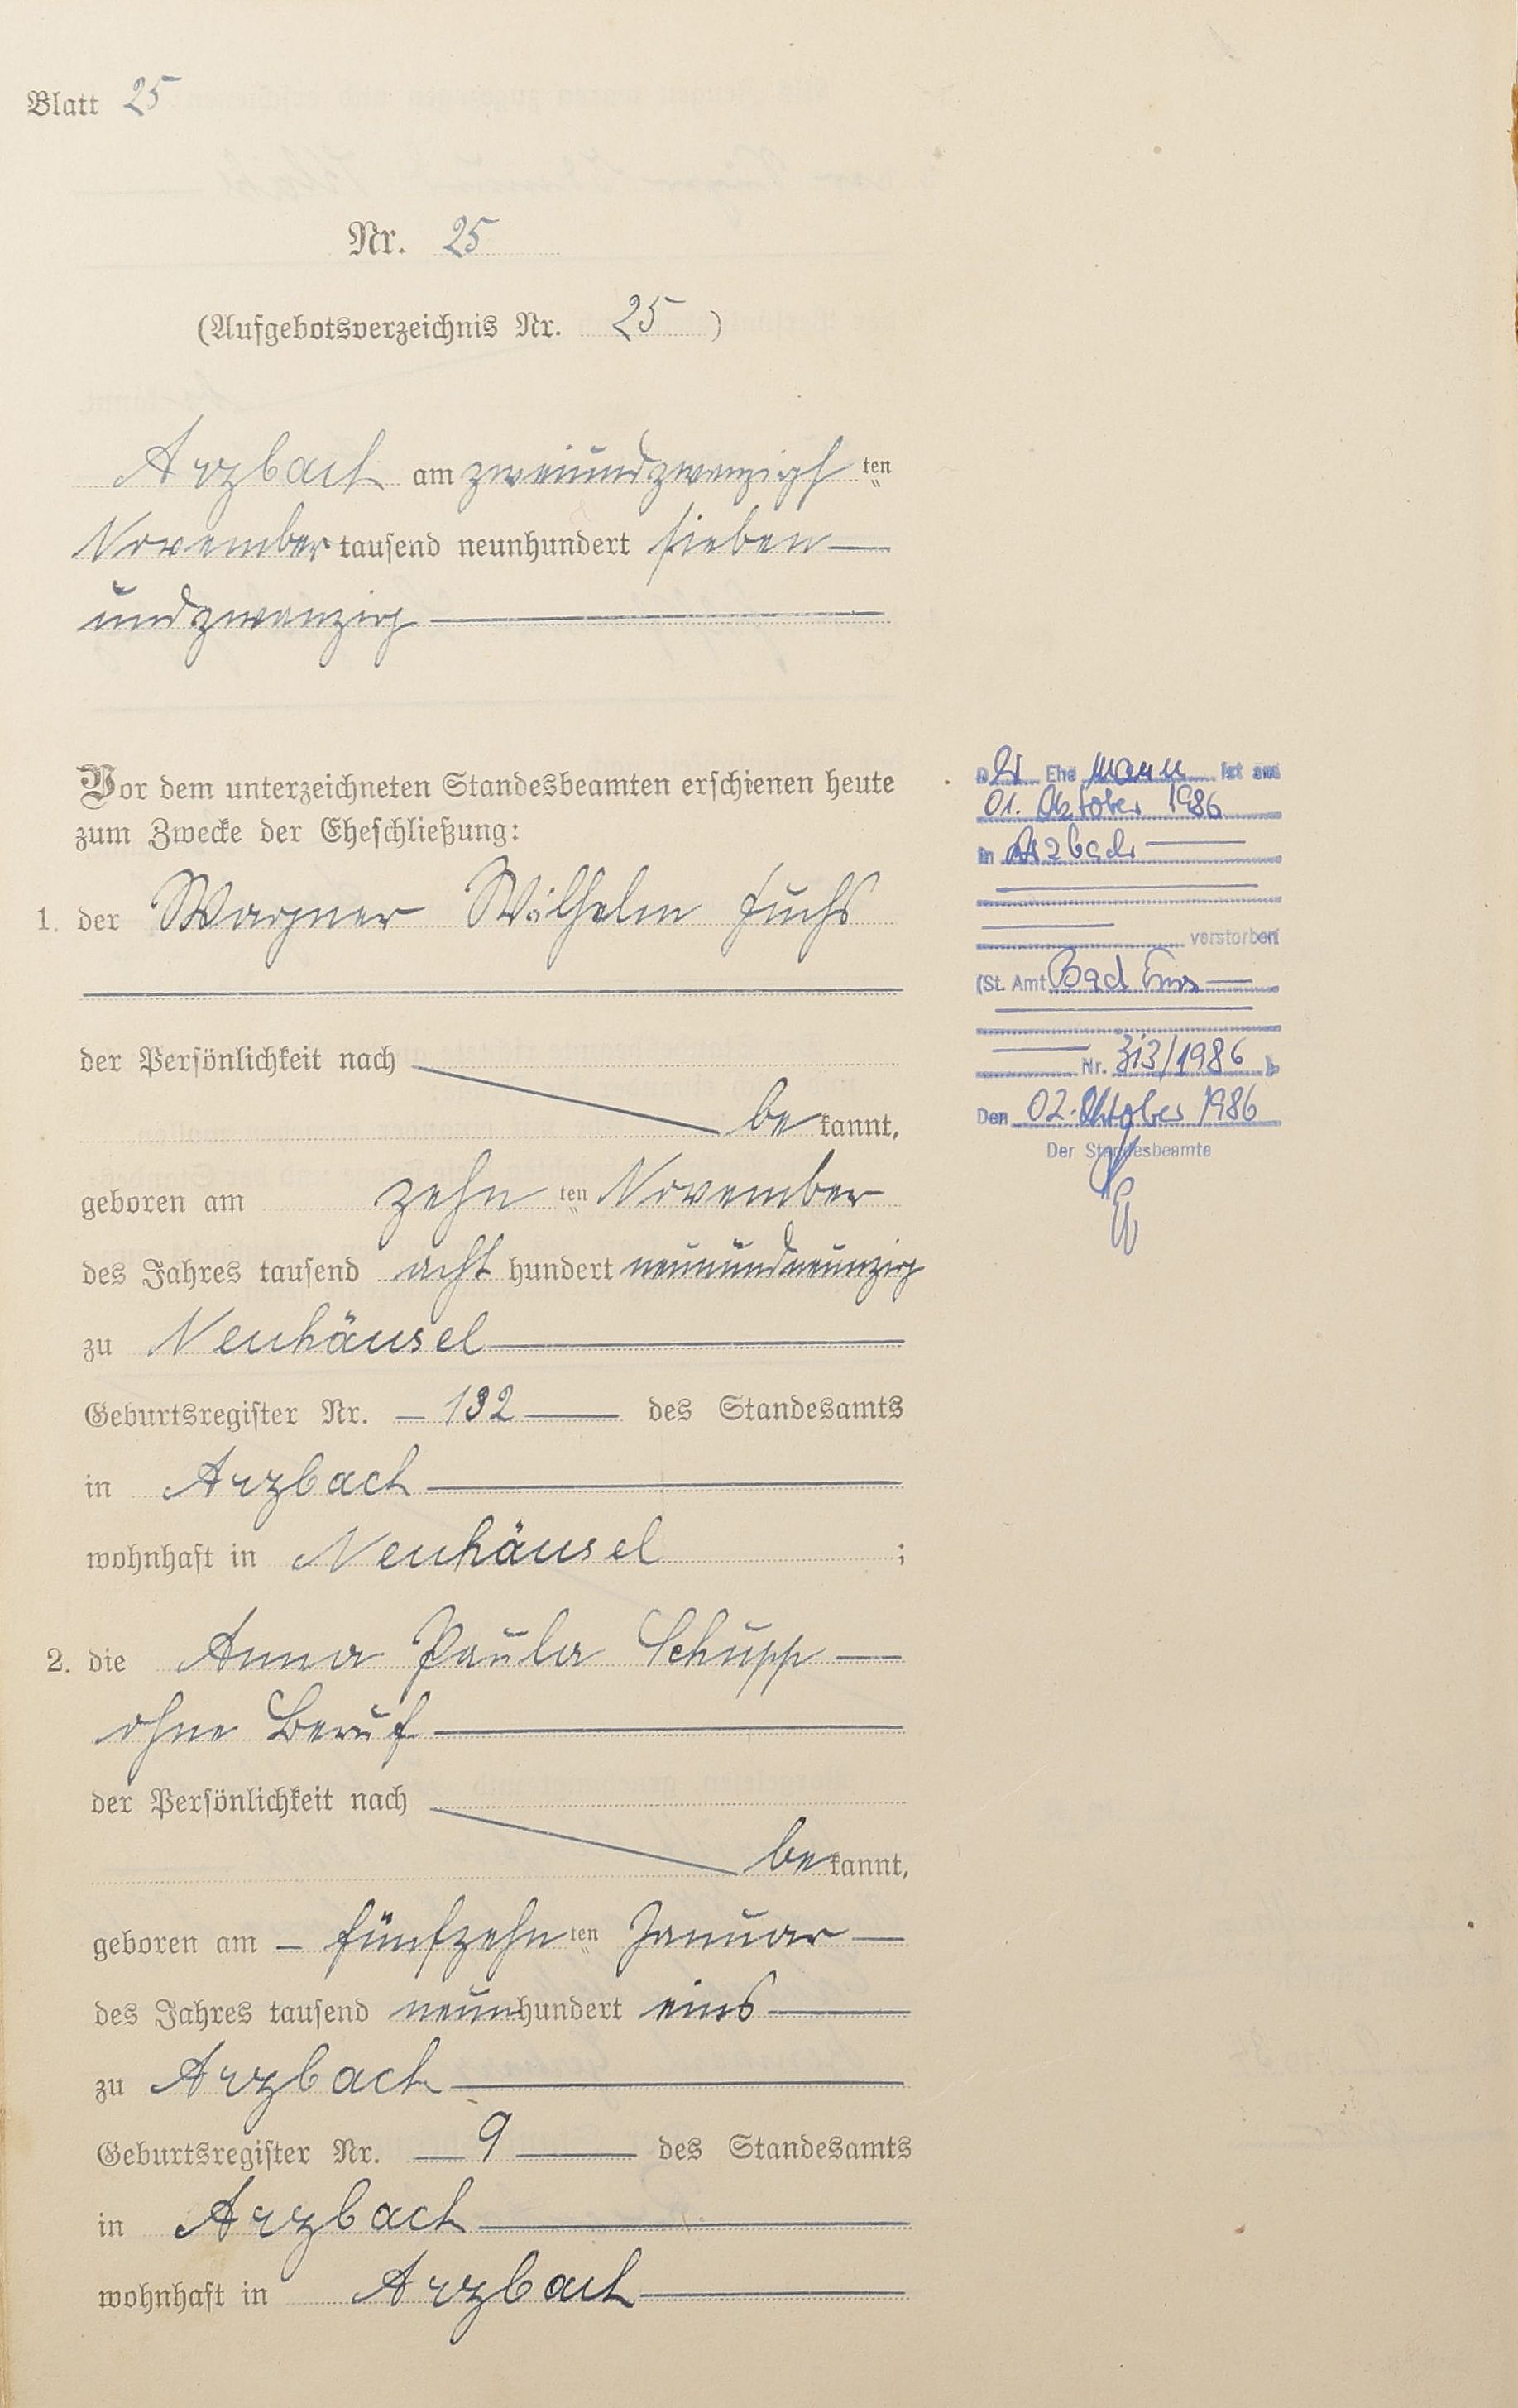 Blatt 25
Nr. 25
(Aufgebotsverzeichnis Nr. 25 )
Arzbach am zweiundzwanzigsten
November tausend neunhundert sieben
undzwanzig
Vor dem unterzeichneten Standesbeamten erschienen heute
zum Zwecke der Eheschließung:
1. der Wagner Wilhelm Fuchs
der Persönlichkeit nach
be kannt,
geboren am zehn ten November
des Jahres tausend acht hundert neunundneunzig
zu Neuhäusel
Geburtsregister Nr. 132 des Standesamts
in Arzbach
wohnhaft in Neuhäusel ;
2. die Anna Paula Schupp
ohne Beruf
der Persönlichkeit nach
be kannt,
geboren am fünfzehn ten Januar
des Jahres tausend neun hundert eins
zu Arzbach
Geburtsregister Nr. 9 des Standesamts
in Arzbach
wohnhaft in Arzbach
Der Ehe mann ist am
01. Oktober 1986
in Arzbach
verstorben
(St. Amt Bad Ems
Nr. 313/1986 )
Den 02. Oktober 1986
Der Standesbeamte